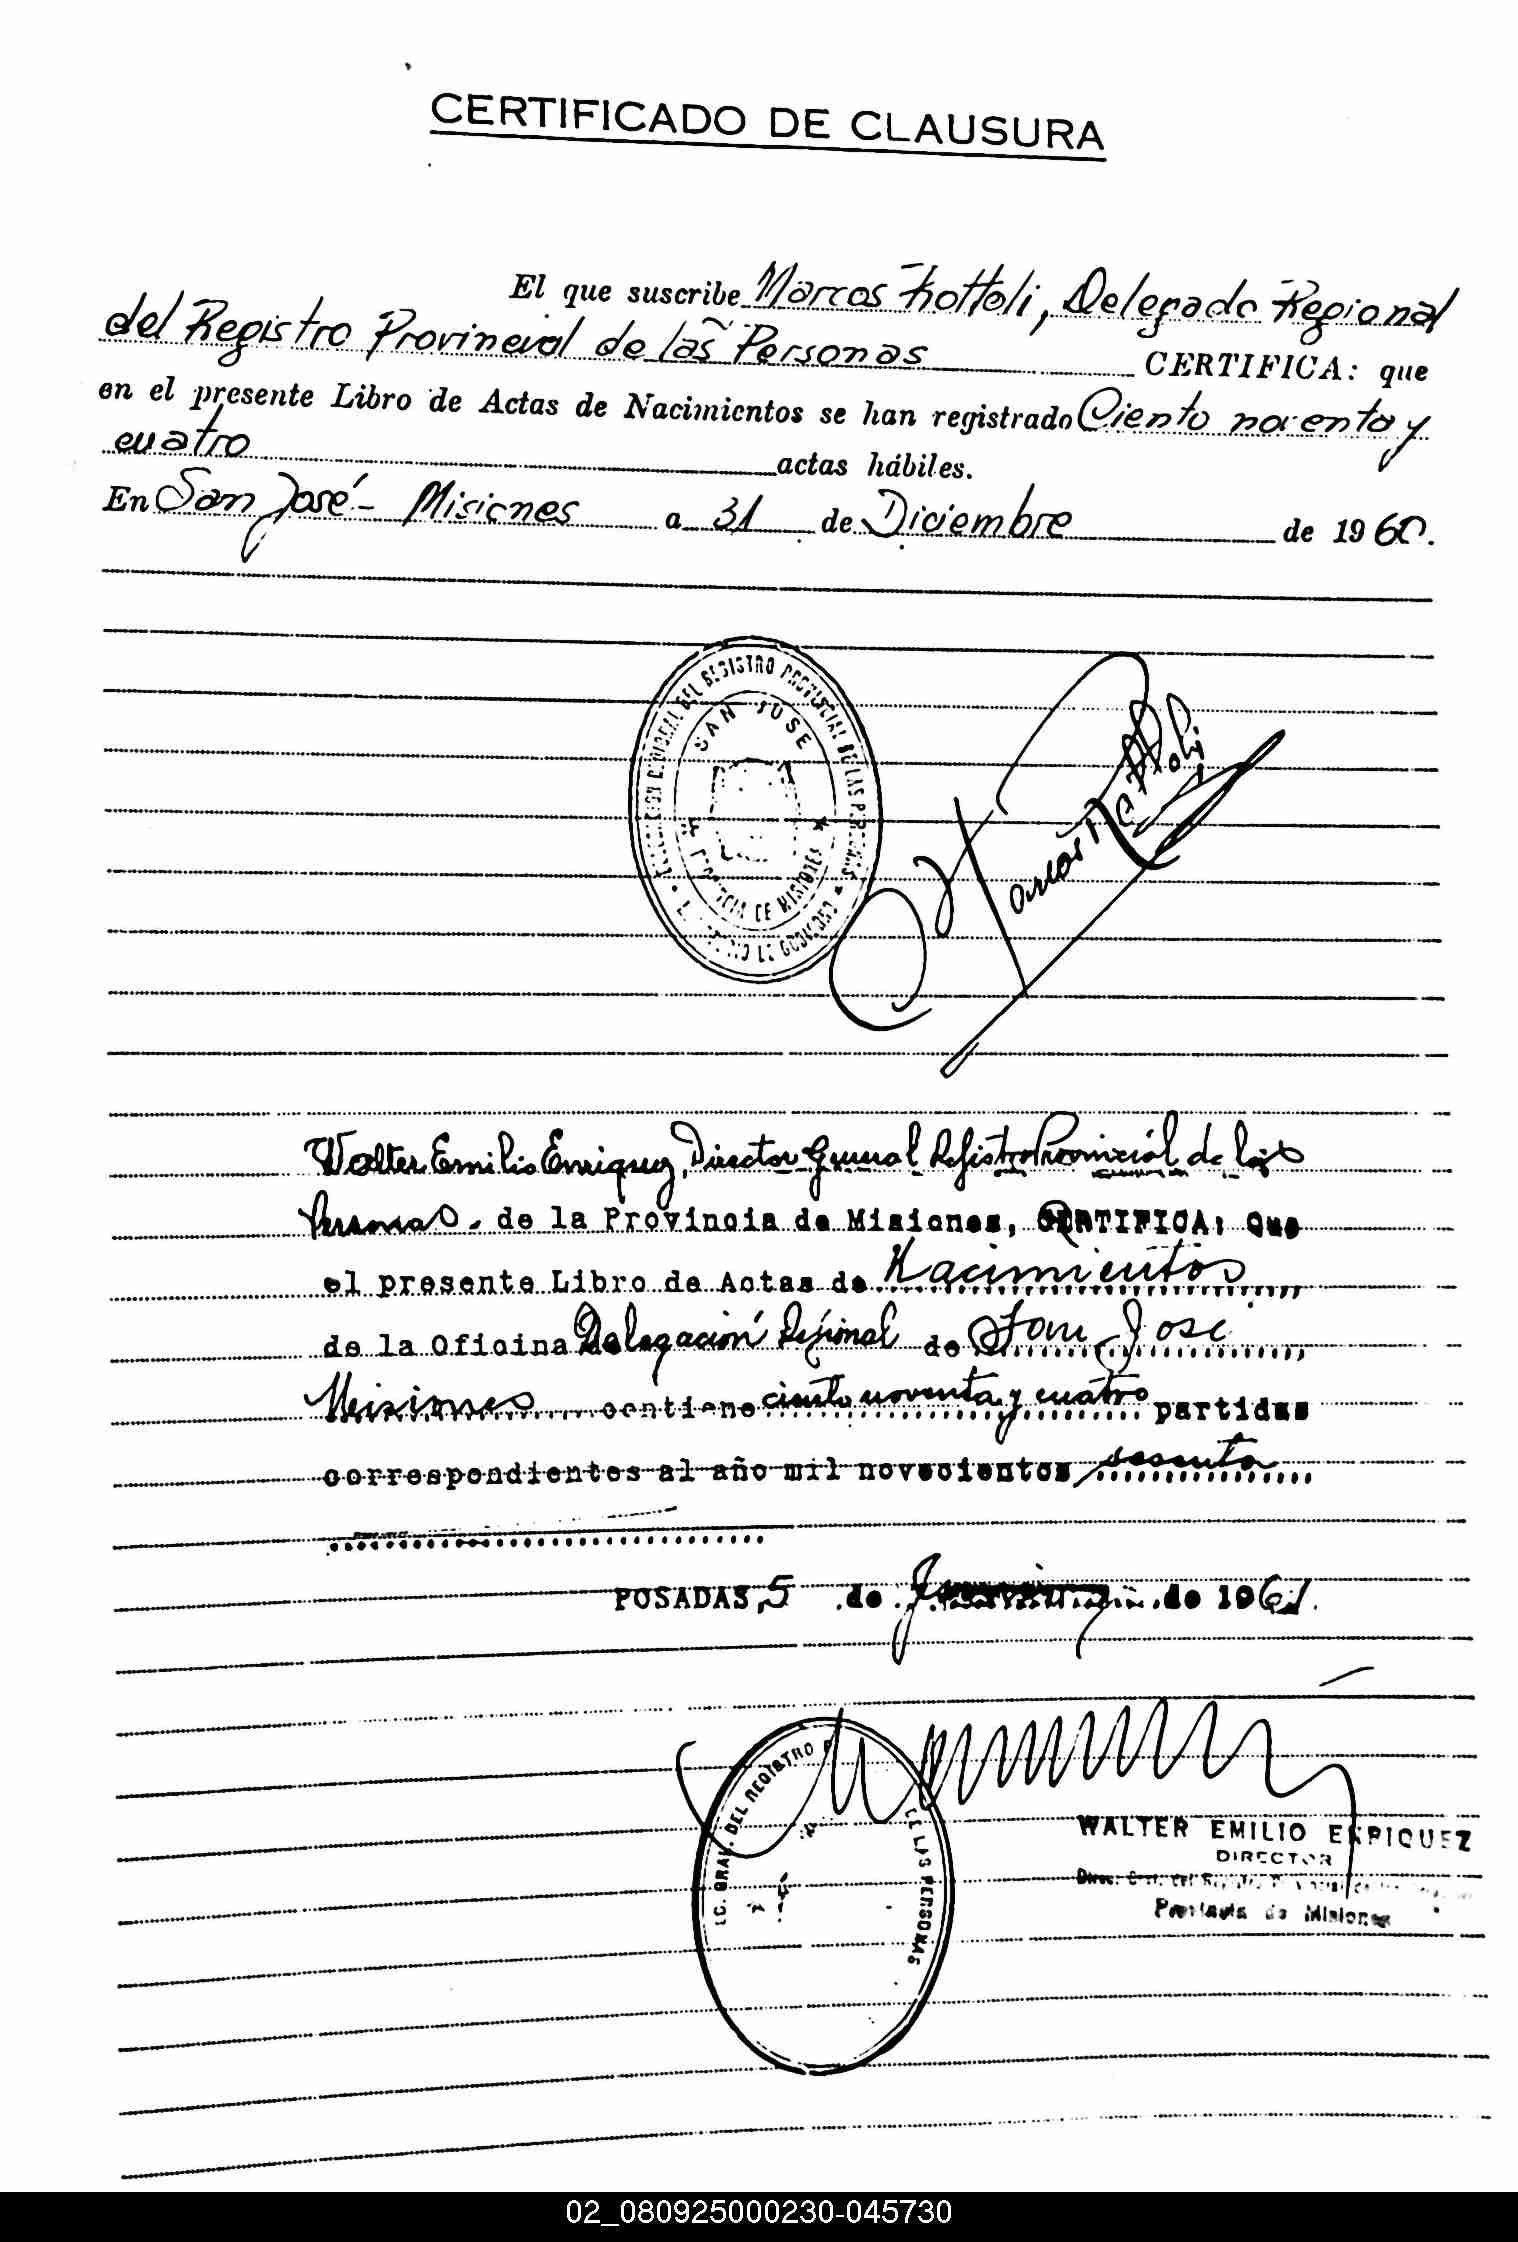 CERTIFICADO DE CLAUSURA
El que suscribe Marcos Rottoli, Delegado Regional
del Registro Provincial de las Personas CERTIFICA: que
en el presente Libro de Actas de Nacimientos se han registrado Ciento noventa y
cuatro actas hábiles.
En San José - Misiones a 31 de Diciembre de 1960.
DEL REGISTRO PROVINCIAL DE LAS PERSONAS
SAN JOSE
PROVINCIA DE MISIONES
Walter Emilio Enriquez, Director General Registro Provincial de las
Personas. de la Provincia de Misiones, CERTIFICA: Que
el presente Libro de Actas de Nacimientos
de la Oficina Delegación Regional de San José
Misiones contiene ciento noventa y cuatro partidas
correspondientes al año mil novecientos sesenta
POSADAS, 5 de de 1961.
GRAL. DEL REGISTRO P
DE LAS PERSONAS
WALTER EMILIO ENRIQUEZ
DIRECTOR
Provincia de Misiones
02_080925000230-045730